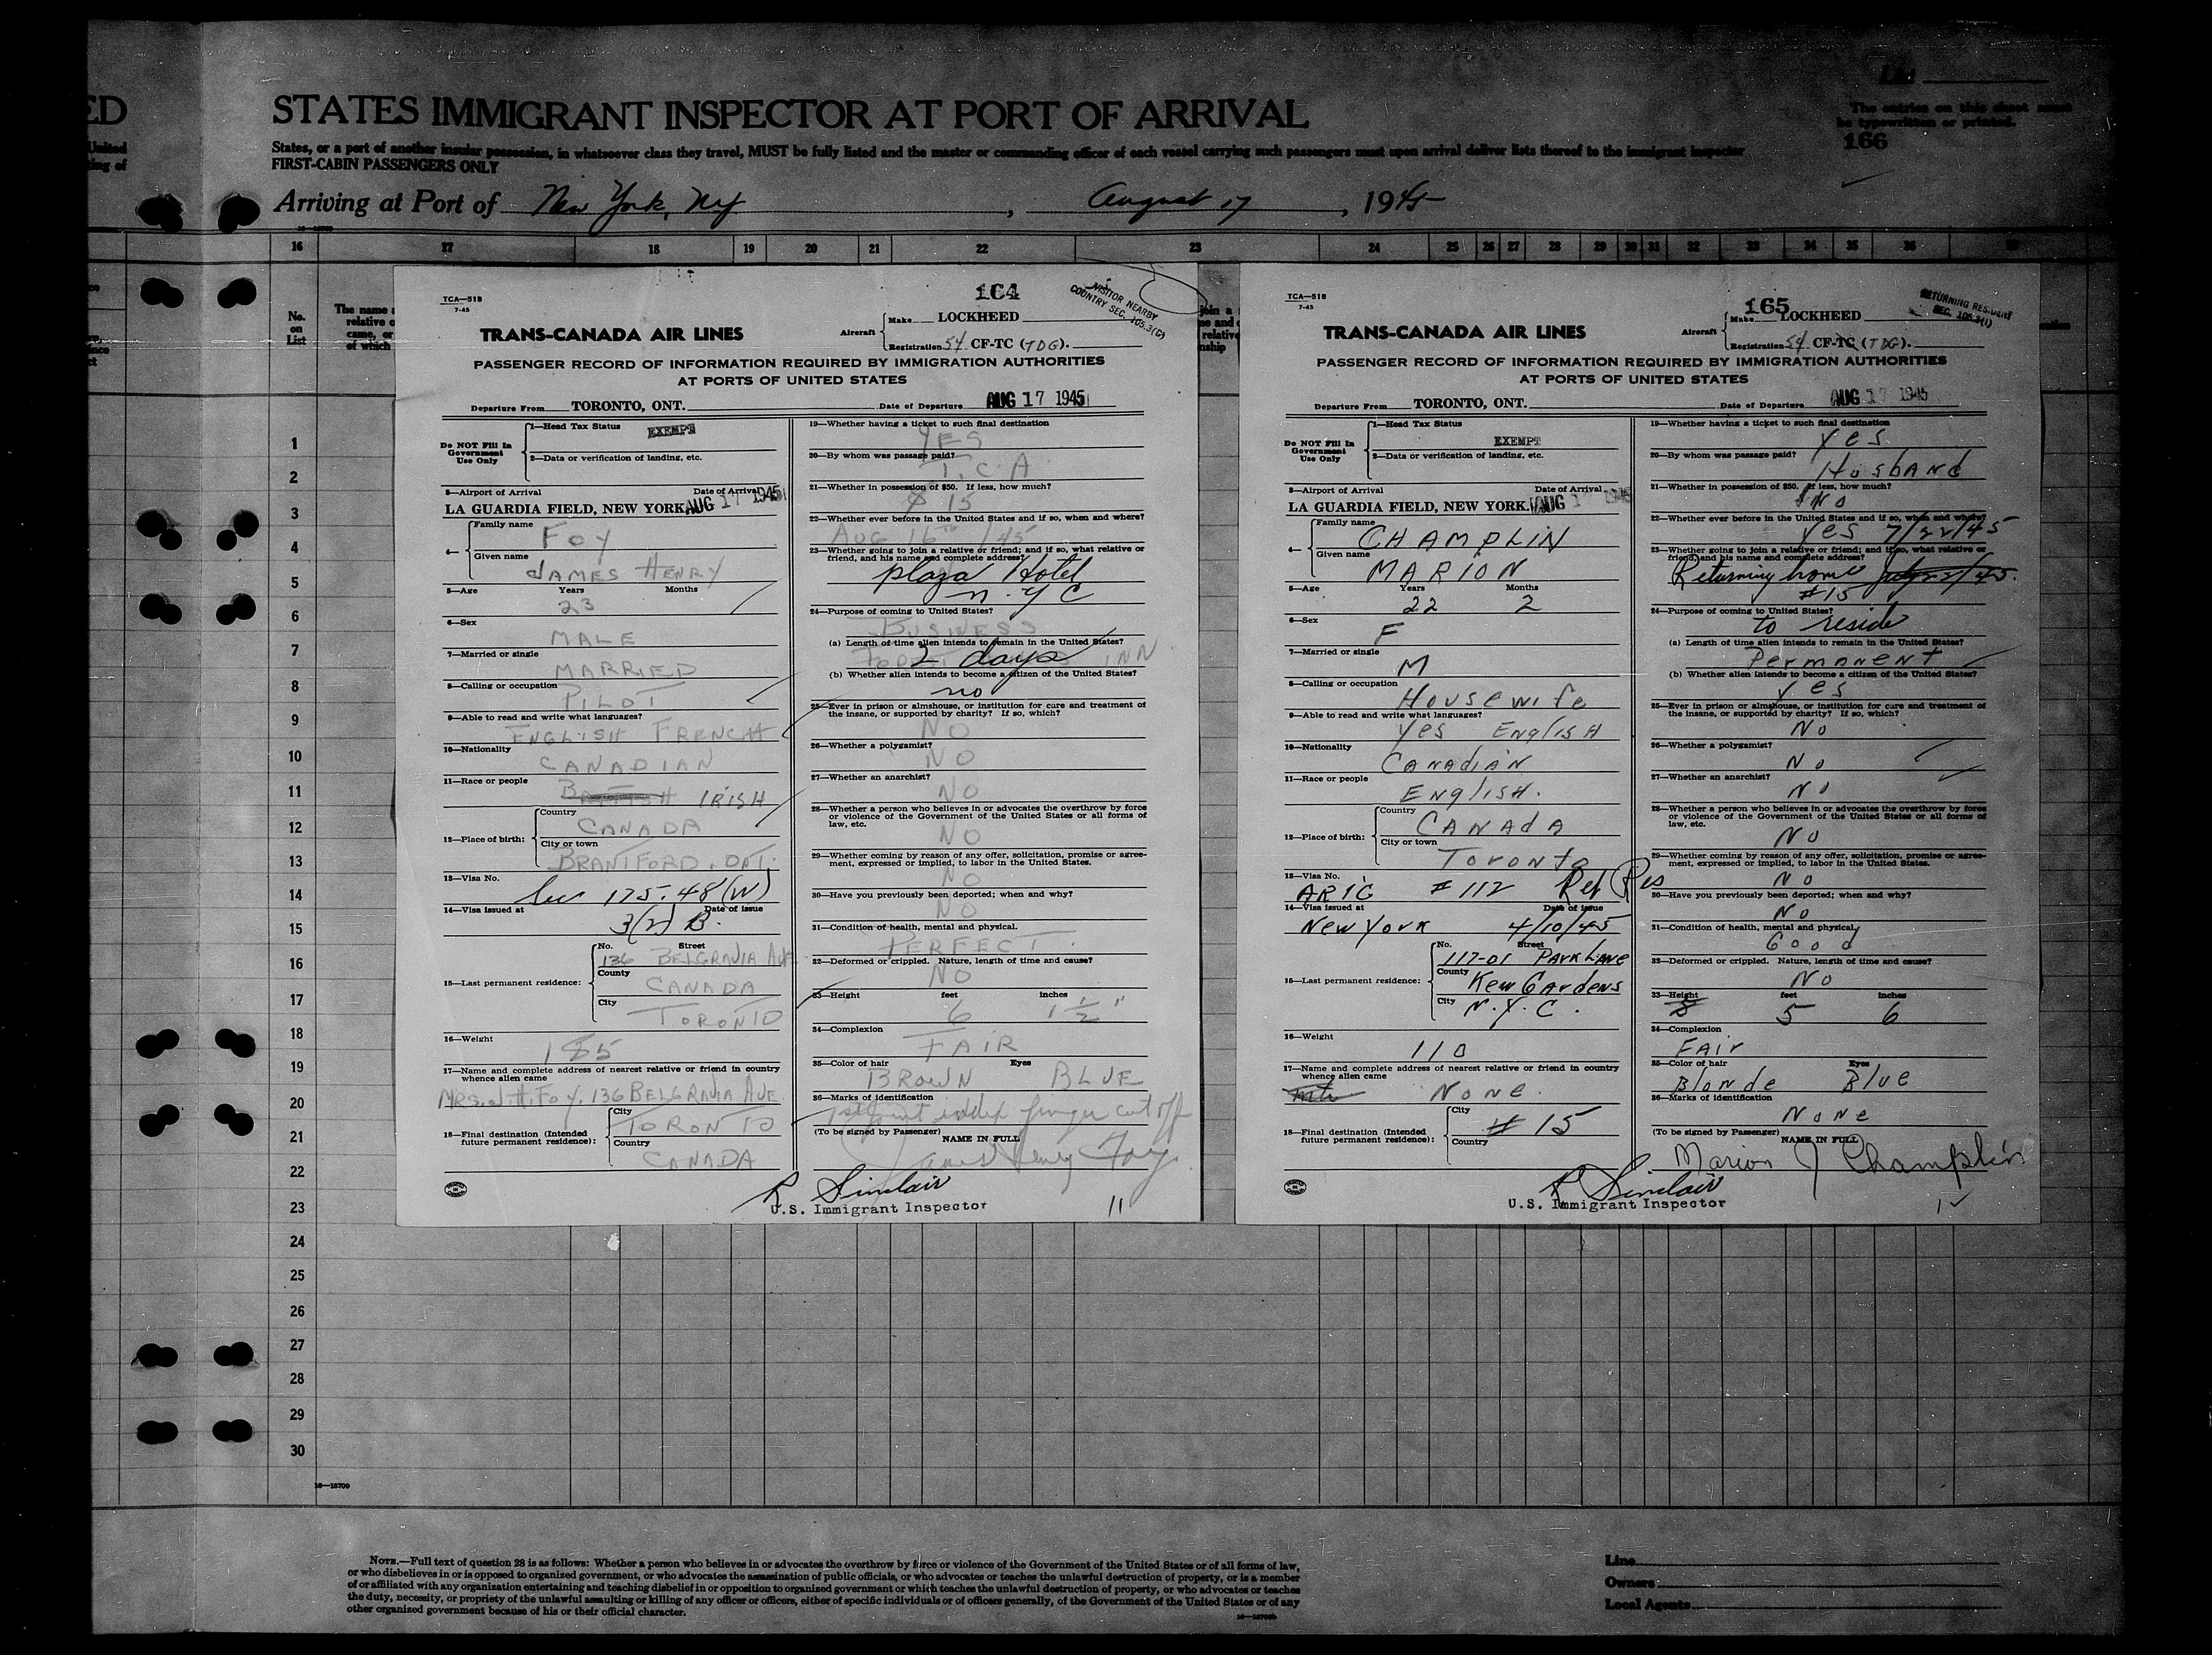 ED
United
STATES IMMIGRANT INSPECTOR AT PORT OF ARRIVAL
The entries on this sheet must
be typewritten or printed.
166
States, or a port of another insular possession, in whatsoever class they travel, MUST be fully listed and the master or commanding officer of each vessel carrying such passengers must upon arrival deliver lists thereof to the immigrant inspector
FIRST-CABIN PASSENGERS ONLY
Arriving at Port of New York, NY, August 17, 1945
16 17 18 19 20 21 22 23 24 25 26 27 28 29 30 31 32 33 34 35 36
No.
on
List
The name
relative o
came, or
of which
1
2
3
4
5
6
7
8
9
10
11
12
13
14
15
16
17
18
19
20
21
22
23
24
25
26
27
28
29
30
TCA—518
7-45
164
VISITOR NEARBY
COUNTRY SEC. 105.3(C)
TRANS-CANADA AIR LINES
Aircraft
Make LOCKHEED
Registration 54 CF-TC (TDG).
PASSENGER RECORD OF INFORMATION REQUIRED BY IMMIGRATION AUTHORITIES
AT PORTS OF UNITED STATES
Departure From TORONTO, ONT. Date of Departure AUG 17 1945
Do NOT Fill In
Government
Use Only
1—Head Tax Status EXEMPT
2—Data or verification of landing, etc.
3—Airport of Arrival Date of Arrival
LA GUARDIA FIELD, NEW YORK AUG 17 1945
4—
Family name
FOY
Given name
JAMES HENRY
5—Age Years Months
23
6—Sex
MALE
7—Married or single
MARRIED
8—Calling or occupation
PILOT
9—Able to read and write what languages?
ENGLISH FRENCH
10—Nationality
CANADIAN
11—Race or people
IRISH
12—Place of birth:
Country
CANADA
City or town
BRANTFORD, ONT.
13—Visa No.
Sec 175.48(W)
14—Visa issued at Date of issue
3(2) B.
15—Last permanent residence:
No. Street
136 BELGRAVIA AVE
County
CANADA
City
TORONTO
16—Weight
185
17—Name and complete address of nearest relative or friend in country
whence alien came
MRS. J.H. FOY, 136 BELGRAVIA AVE
18—Final destination (Intended
future permanent residence):
City
TORONTO
Country
CANADA
19—Whether having a ticket to such final destination
YES
20—By whom was passage paid?
T.C.A
21—Whether in possession of $50. If less, how much?
$15
22—Whether ever before in the United States and if so, when and where?
AUG 16TH /45
23—Whether going to join a relative or friend; and if so, what relative or
friend, and his name and complete address?
Plaza Hotel
N.Y.C
24—Purpose of coming to United States?
BUSINESS
(a) Length of time alien intends to remain in the United States?
2 days INN
(b) Whether alien intends to become a citizen of the United States?
no
25—Ever in prison or almshouse, or institution for care and treatment of
the insane, or supported by charity? If so, which?
NO
26—Whether a polygamist?
NO
27—Whether an anarchist?
NO
28—Whether a person who believes in or advocates the overthrow by force
or violence of the Government of the United States or all forms of
law, etc.
NO
29—Whether coming by reason of any offer, solicitation, promise or agree-
ment, expressed or implied, to labor in the United States.
NO
30—Have you previously been deported; when and why?
NO
31—Condition of health, mental and physical.
PERFECT.
32—Deformed or crippled. Nature, length of time and cause?
NO
33—Height feet inches
6 1 1/2"
34—Complexion
FAIR
35—Color of hair Eyes
BROWN BLUE
36—Marks of identification
1st joint index finger cut off
(To be signed by Passenger) NAME IN FULL
James Henry Foy.
R Sinclair
U.S. Immigrant Inspector
11
TCA—518
7-45
165
RETURNING RESIDENT
SEC. 105.3(1)
TRANS-CANADA AIR LINES
Aircraft
Make LOCKHEED
Registration 54 CF-TC (TDG).
PASSENGER RECORD OF INFORMATION REQUIRED BY IMMIGRATION AUTHORITIES
AT PORTS OF UNITED STATES
Departure From TORONTO, ONT. Date of Departure AUG 17 1945
Do NOT Fill In
Government
Use Only
1—Head Tax Status
EXEMPT
2—Data or verification of landing, etc.
3—Airport of Arrival Date of Arrival
LA GUARDIA FIELD, NEW YORK. AUG 1 1945
4—
Family name
CHAMPLIN
Given name
MARION
5—Age Years Months
22 2
6—Sex
F
7—Married or single
M
8—Calling or occupation
Housewife
9—Able to read and write what languages?
Yes English
10—Nationality
Canadian
11—Race or people
English.
12—Place of birth:
Country
CANADA
City or town
Toronto
13—Visa No.
ARIC #112 Ret Res
14—Visa issued at Date of issue
New York 4/10/45
15—Last permanent residence:
No. Street
117-01 Park Lane
County
Kew Gardens
City
N.Y.C.
16—Weight
110
17—Name and complete address of nearest relative or friend in country
whence alien came
None.
18—Final destination (Intended
future permanent residence):
City
#15
Country
19—Whether having a ticket to such final destination
Yes
20—By whom was passage paid?
Husband
21—Whether in possession of $50. If less, how much?
No
22—Whether ever before in the United States and if so, when and where?
Yes 7/22/45
23—Whether going to join a relative or friend; and if so, what relative or
friend, and his name and complete address?
Returning home July 22/45.
#15
24—Purpose of coming to United States?
to reside
(a) Length of time alien intends to remain in the United States?
Permanent
(b) Whether alien intends to become a citizen of the United States?
Yes
25—Ever in prison or almshouse, or institution for care and treatment of
the insane, or supported by charity? If so, which?
No
26—Whether a polygamist?
No
27—Whether an anarchist?
No
28—Whether a person who believes in or advocates the overthrow by force
or violence of the Government of the United States or all forms of
law, etc.
No
29—Whether coming by reason of any offer, solicitation, promise or agree-
ment, expressed or implied, to labor in the United States.
No
30—Have you previously been deported; when and why?
No
31—Condition of health, mental and physical.
Good
32—Deformed or crippled. Nature, length of time and cause?
No
33—Height feet inches
5 6
34—Complexion
Fair
35—Color of hair Eyes
Blonde Blue
36—Marks of identification
None
(To be signed by Passenger) NAME IN FULL
Marion J Champlin
R Sinclair
U.S. Immigrant Inspector
16—18709
NOTE.—Full text of question 28 is as follows: Whether a person who believes in or advocates the overthrow by force or violence of the Government of the United States or of all forms of law,
or who disbelieves in or is opposed to organized government, or who advocates the assassination of public officials, or who advocates or teaches the unlawful destruction of property, or is a member
of or affiliated with any organization entertaining and teaching disbelief in or opposition to organized government or which teaches the unlawful destruction of property, or who advocates or teaches
the duty, necessity, or propriety of the unlawful assaulting or killing of any officer or officers, either of specific individuals or of officers generally, of the Government of the United States or of any
other organized government because of his or their official character.
Line
Owners
Local Agents